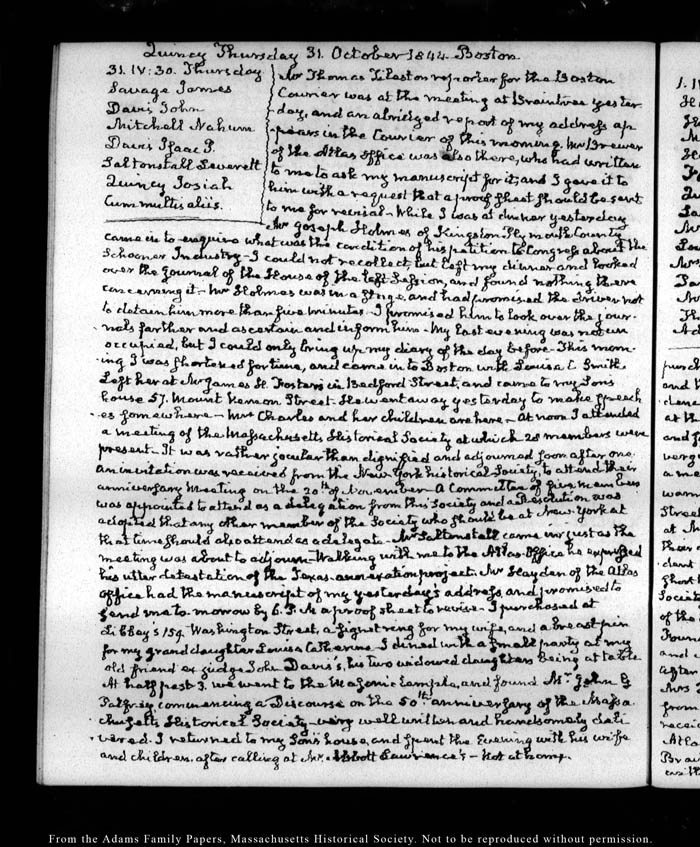 Quincy Thursday 31. October 1844. Boston
31. IV: 30. Thursday
Savage James
Davis John
Mitchell Nahum
Davis Isaac P.
Saltonstall Leverett
Quincy Josiah
Cum multis aliis.
Mr Thomas Tileston reporter for the Boston
Courier was at the meeting at Braintree yester
day, and an abridged report of my address ap
pears in the Courier of this morning. Mr Brewer
of the Atlas Office was also there, who had written
to me to ask my manuscript for it, and I gave it to
him with a request that a proof sheet should be sent
to me for revisal. While I was at dinner yesterday
Mr Joseph Holmes of Kingston Plymouth County
came in to enquire what was the condition of his petition to Congress about the
Schooner Industry. I could not recollect, but left my dinner and looked
over the Journal of the House of the last Session, and found nothing there
concerning it. Mr Holmes was in a Stage, and had promised the driver not
to detain him more than five minutes. I promised him to look over the jour-
nals further and ascertain and inform him. My last evening was not un
occupied, but I could only bring up my diary of the day before. This morn-
ing I was shortened for time, and came in to Boston with Louisa C. Smith
Left her at Mr James H. Foster's in Bedford Street, and came to my Son's
house 57. Mount Vernon Street. He went away yesterday to make speech
es somewhere. Mrs Charles and her children are here. At noon I attended
a meeting of the Massachusetts Historical Society at which 28 members were
present. It was rather jocular than dignified and adjourned soon after one.
An invitation was received from the New York historical Society, to attend their
anniversary Meeting on the 20th of November. A Committee of five members
was appointed to attend as a delegation from this Society and a Resolution was
adopted that any other member of the Society who should be at New York at
that time should also attend as a delegate. Mr Saltonstall came in just as the
meeting was about to adjourn. Walking with me to the Atlas Office he expressed
his utter detestation of the Texas annexation project. Mr Hayden of the Atlas
office had the manuscript of my yesterday's address, and promised to
send me to morrow by 6. P. M a proof sheet to revise. I purchased at
Libbey's 159. Washington Street, a signet ring for my wife, and a breast pin
for my grand daughter Louisa Catherine. I dined with a small party at my
old friend ex judge John Davis's, his two widowed daughters being at table
At half past 3. we went to the Masonic Temple, and found Mr John G
Palfrey, commencing a Discourse on the 50th anniversary of the Massa
chusetts Historical Society very well written and handsomely deli
vered. I returned to my Son's house, and spent the Evening with his wife
and children, after calling at Mr. Abbott Lawrence's - Not at home.
From the Adams Family Papers, Massachusetts Historical Society. Not to be reproduced without permission.